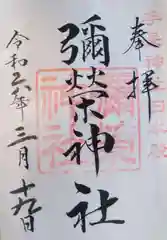 奉拝
彌榮神社
令和六年三月十九日